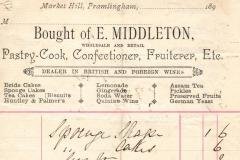 Market Hill, Framlingham, 189
Bought of E. MIDDLETON,
WHOLESALE AND RETAIL
Pastry-Cook, Confectioner, Fruiterer, Etc.
DEALER IN BRITISH AND FOREIGN WINES
Bride Cakes Lemonade Assam Tea
Sponge Cakes Gingerade Pickles
Tea Cakes [Biscuits Soda Water Preserved Fruits
Huntley & Palmer's Quinine Wine German Yeast
Sponge 1 6
" Cakes 6